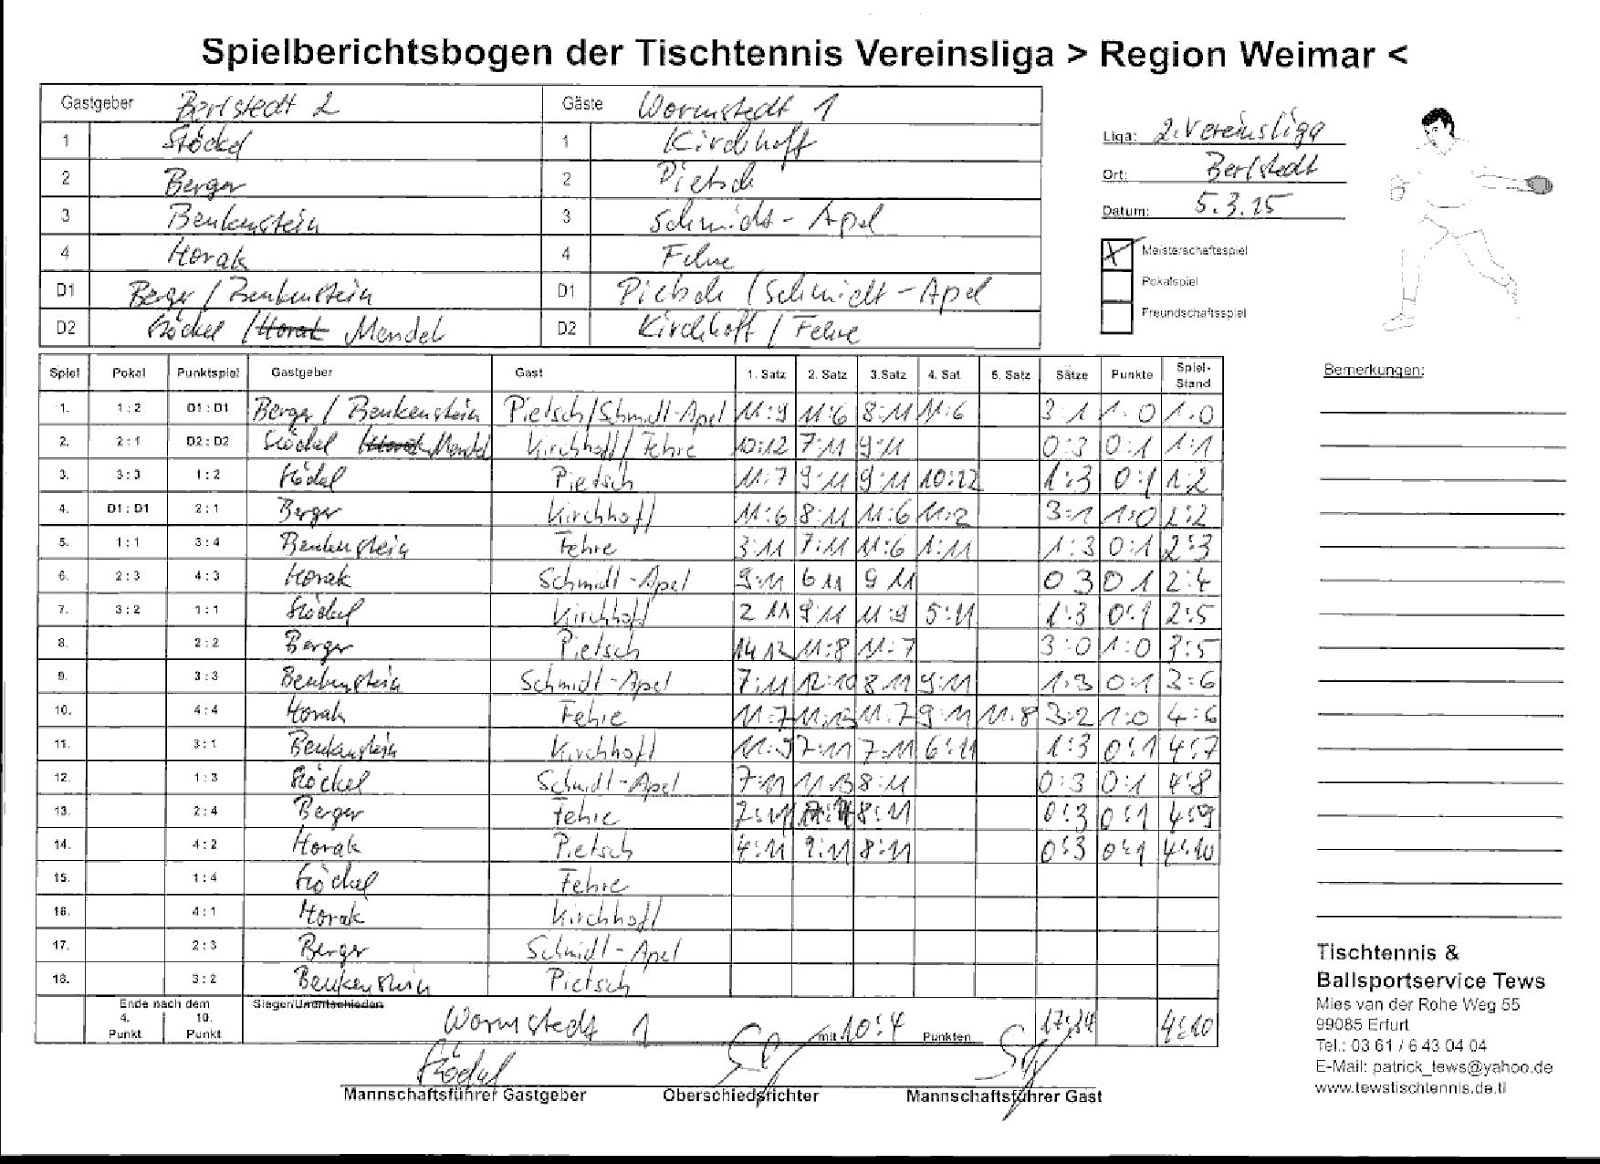 Spielberichtsbogen der Tischtennis Vereinsliga > Region Weimar <
Gastgeber Berlstedt 2 Gäste Wormstedt 1
1 Stöckel 1 Kirchhoff
2 Berger 2 Pietsch
3 Benkenstein 3 Schmidt-Apel
4 Horak 4 Fehre
D1 Berger / Benkenstein D1 Pietsch / Schmidt-Apel
D2 Stöckel / Horak Mendel D2 Kirchhoff / Fehre
Liga: 2. Vereinsliga
Ort: Berlstedt
Datum: 5.3.15
X Meisterschaftsspiel
Pokalspiel
Freundschaftsspiel
Spiel Pokal Punktspiel Gastgeber Gast 1. Satz 2. Satz 3. Satz 4. Sat. 5. Satz Sätze Punkte Spiel-Stand
1. 1:2 D1:D1 Berger / Benkenstein Pietsch/Schmidt-Apel 11:9 11:6 8:11 11:6 3 1 1:0 1:0
2. 2:1 D2:D2 Stöckel Horak Mendel Kirchhoff/Fehre 10:12 7:11 9:11 0:3 0:1 1:1
3. 3:3 1:2 Stöckel Pietsch 11:7 9:11 9:11 10:12 1:3 0:1 1:2
4. D1:D1 2:1 Berger Kirchhoff 11:6 8:11 11:6 11:2 3:1 1:0 2:2
5. 1:1 3:4 Benkenstein Fehre 3:11 7:11 11:6 1:11 1:3 0:1 2:3
6. 2:3 4:3 Horak Schmidt-Apel 9:11 6 11 9 11 0 3 0 1 2:4
7. 3:2 1:1 Stöckel Kirchhoff 2 11 9:11 11:9 5:11 1:3 0:1 2:5
8. 2:2 Berger Pietsch 14 12 11:8 11:7 3:0 1:0 3:5
9. 3:3 Benkenstein Schmidt-Apel 7:11 12:10 8 11 9:11 1:3 0:1 3:6
10. 4:4 Horak Fehre 11:7 11:13 11:7 9:11 11:8 3:2 1:0 4:6
11. 3:1 Benkenstein Kirchhoff 11:9 7:11 7:11 6:11 1:3 0:1 4:7
12. 1:3 Stöckel Schmidt-Apel 7:11 11:13 8:11 0:3 0:1 4:8
13. 2:4 Berger Fehre 7:11 8:11 0:3 0:1 4:9
14. 4:2 Horak Pietsch 4:11 9:11 8:11 0:3 0:1 4:10
15. 1:4 Stöckel Fehre
16. 4:1 Horak Kirchhoff
17. 2:3 Berger Schmidt-Apel
18. 3:2 Benkenstein Pietsch
Ende nach dem
4. Punkt 10. Punkt
Sieger/Unentschieden
Wormstedt 1 mit 10:4 Punkten 17:34 4:10
Stöckel
Mannschaftsführer Gastgeber Oberschiedsrichter Mannschaftsführer Gast
Bemerkungen:
Tischtennis &
Ballsportservice Tews
Mies van der Rohe Weg 55
99085 Erfurt
Tel.: 03 61 / 6 43 04 04
E-Mail: patrick_tews@yahoo.de
www.tewstischtennis.de.tl